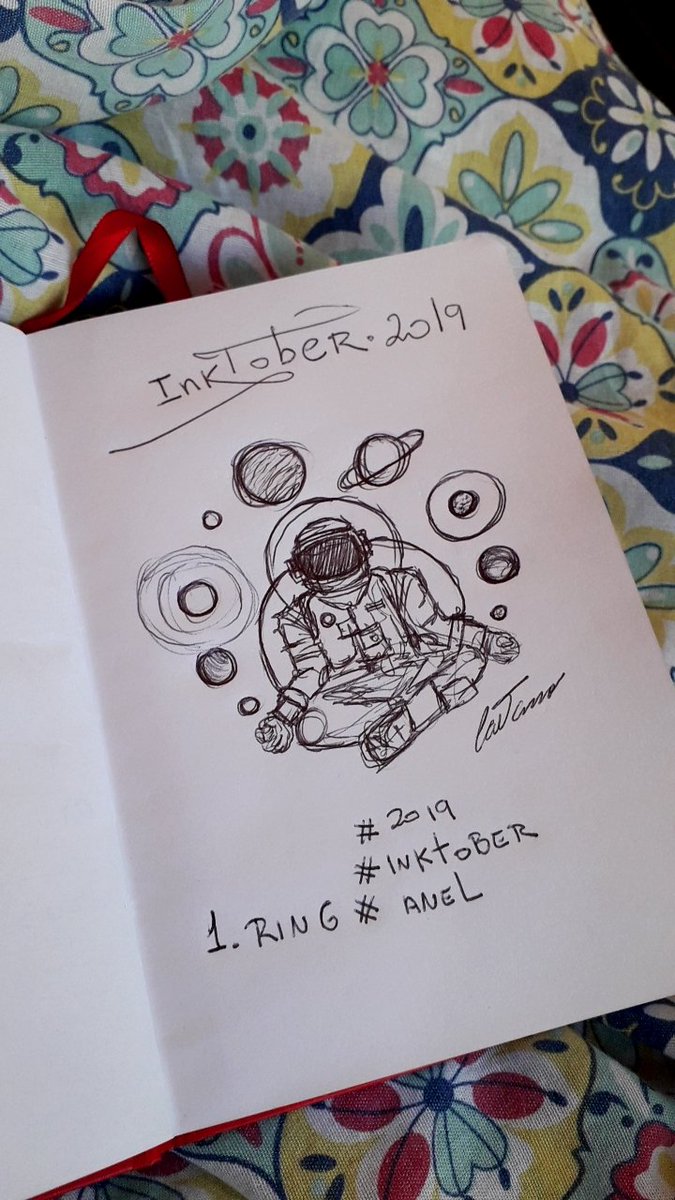 InkTober.2019
#2019
#INKTOBER
1. RING # ANEL